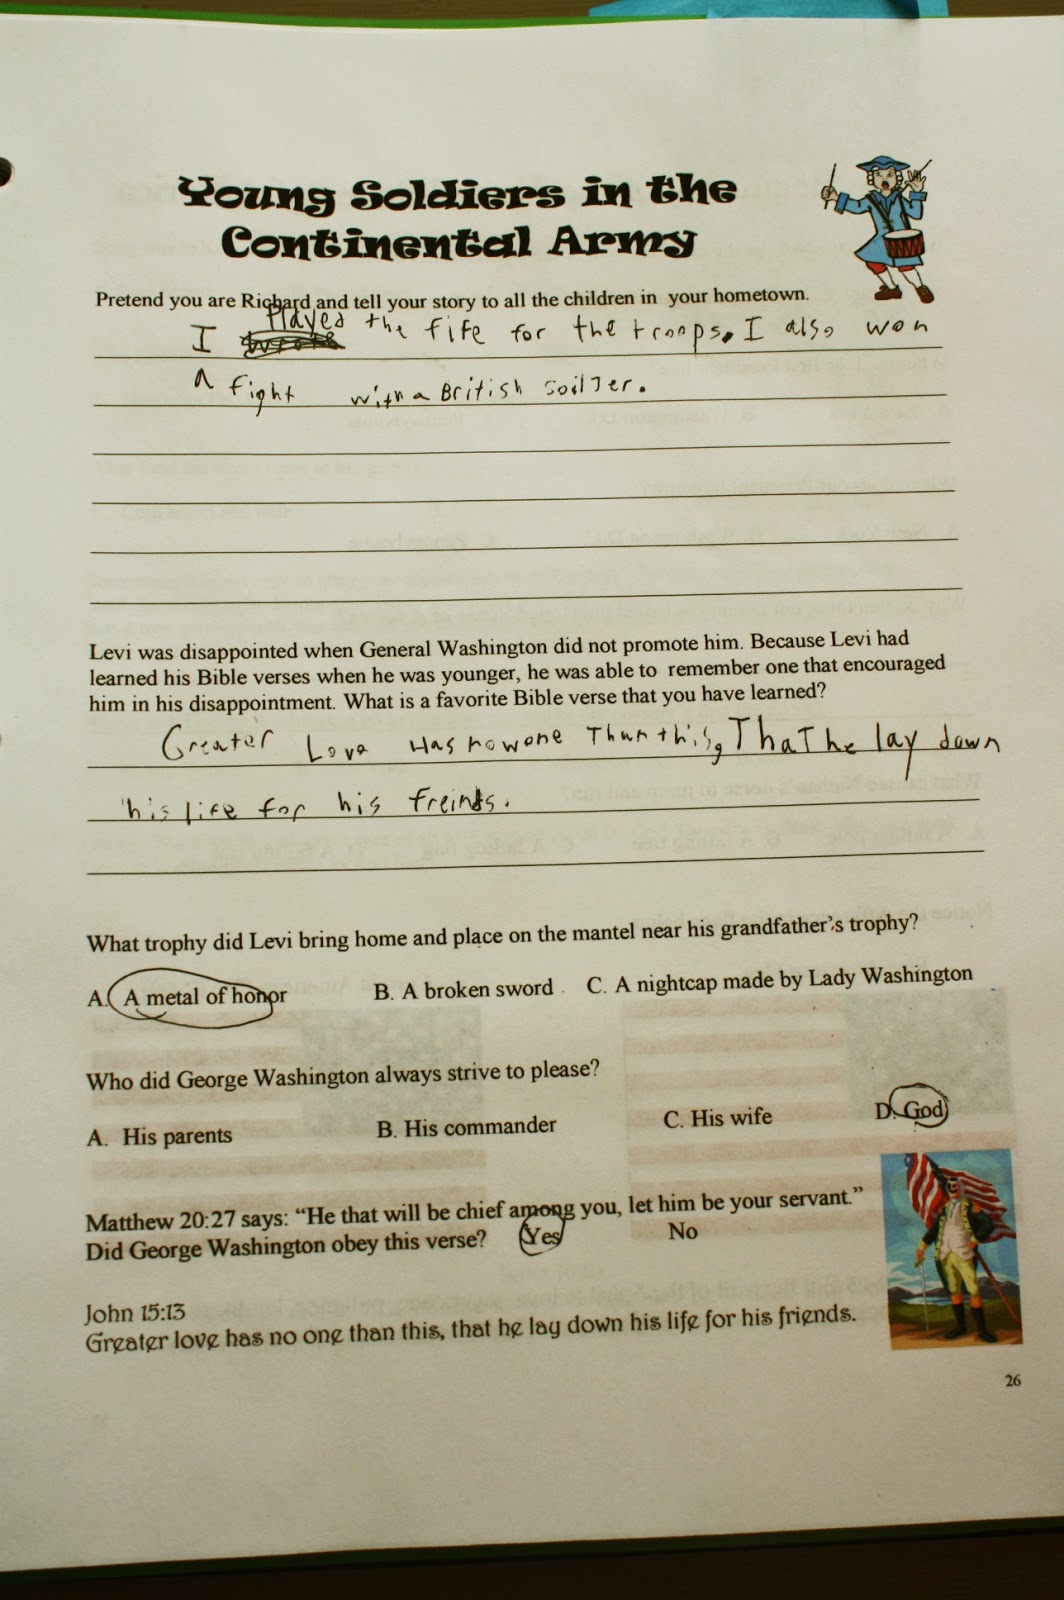 Young Soldiers in the
Continental Army
Pretend you are Richard and tell your story to all the children in your hometown.
Played
I wrote the fife for the troops. I also won
A fight with a British soilJer.
Levi was disappointed when General Washington did not promote him. Because Levi had
learned his Bible verses when he was younger, he was able to remember one that encouraged
him in his disappointment. What is a favorite Bible verse that you have learned?
Greater Love Has nowone Than this, ThaT he lay down
his life for his freinds.
What trophy did Levi bring home and place on the mantel near his grandfather's trophy?
A. A metal of honor B. A broken sword C. A nightcap made by Lady Washington
Who did George Washington always strive to please?
A. His parents B. His commander C. His wife D. God
Matthew 20:27 says: “He that will be chief among you, let him be your servant.”
Did George Washington obey this verse? Yes No
John 15:13
Greater love has no one than this, that he lay down his life for his friends.
26